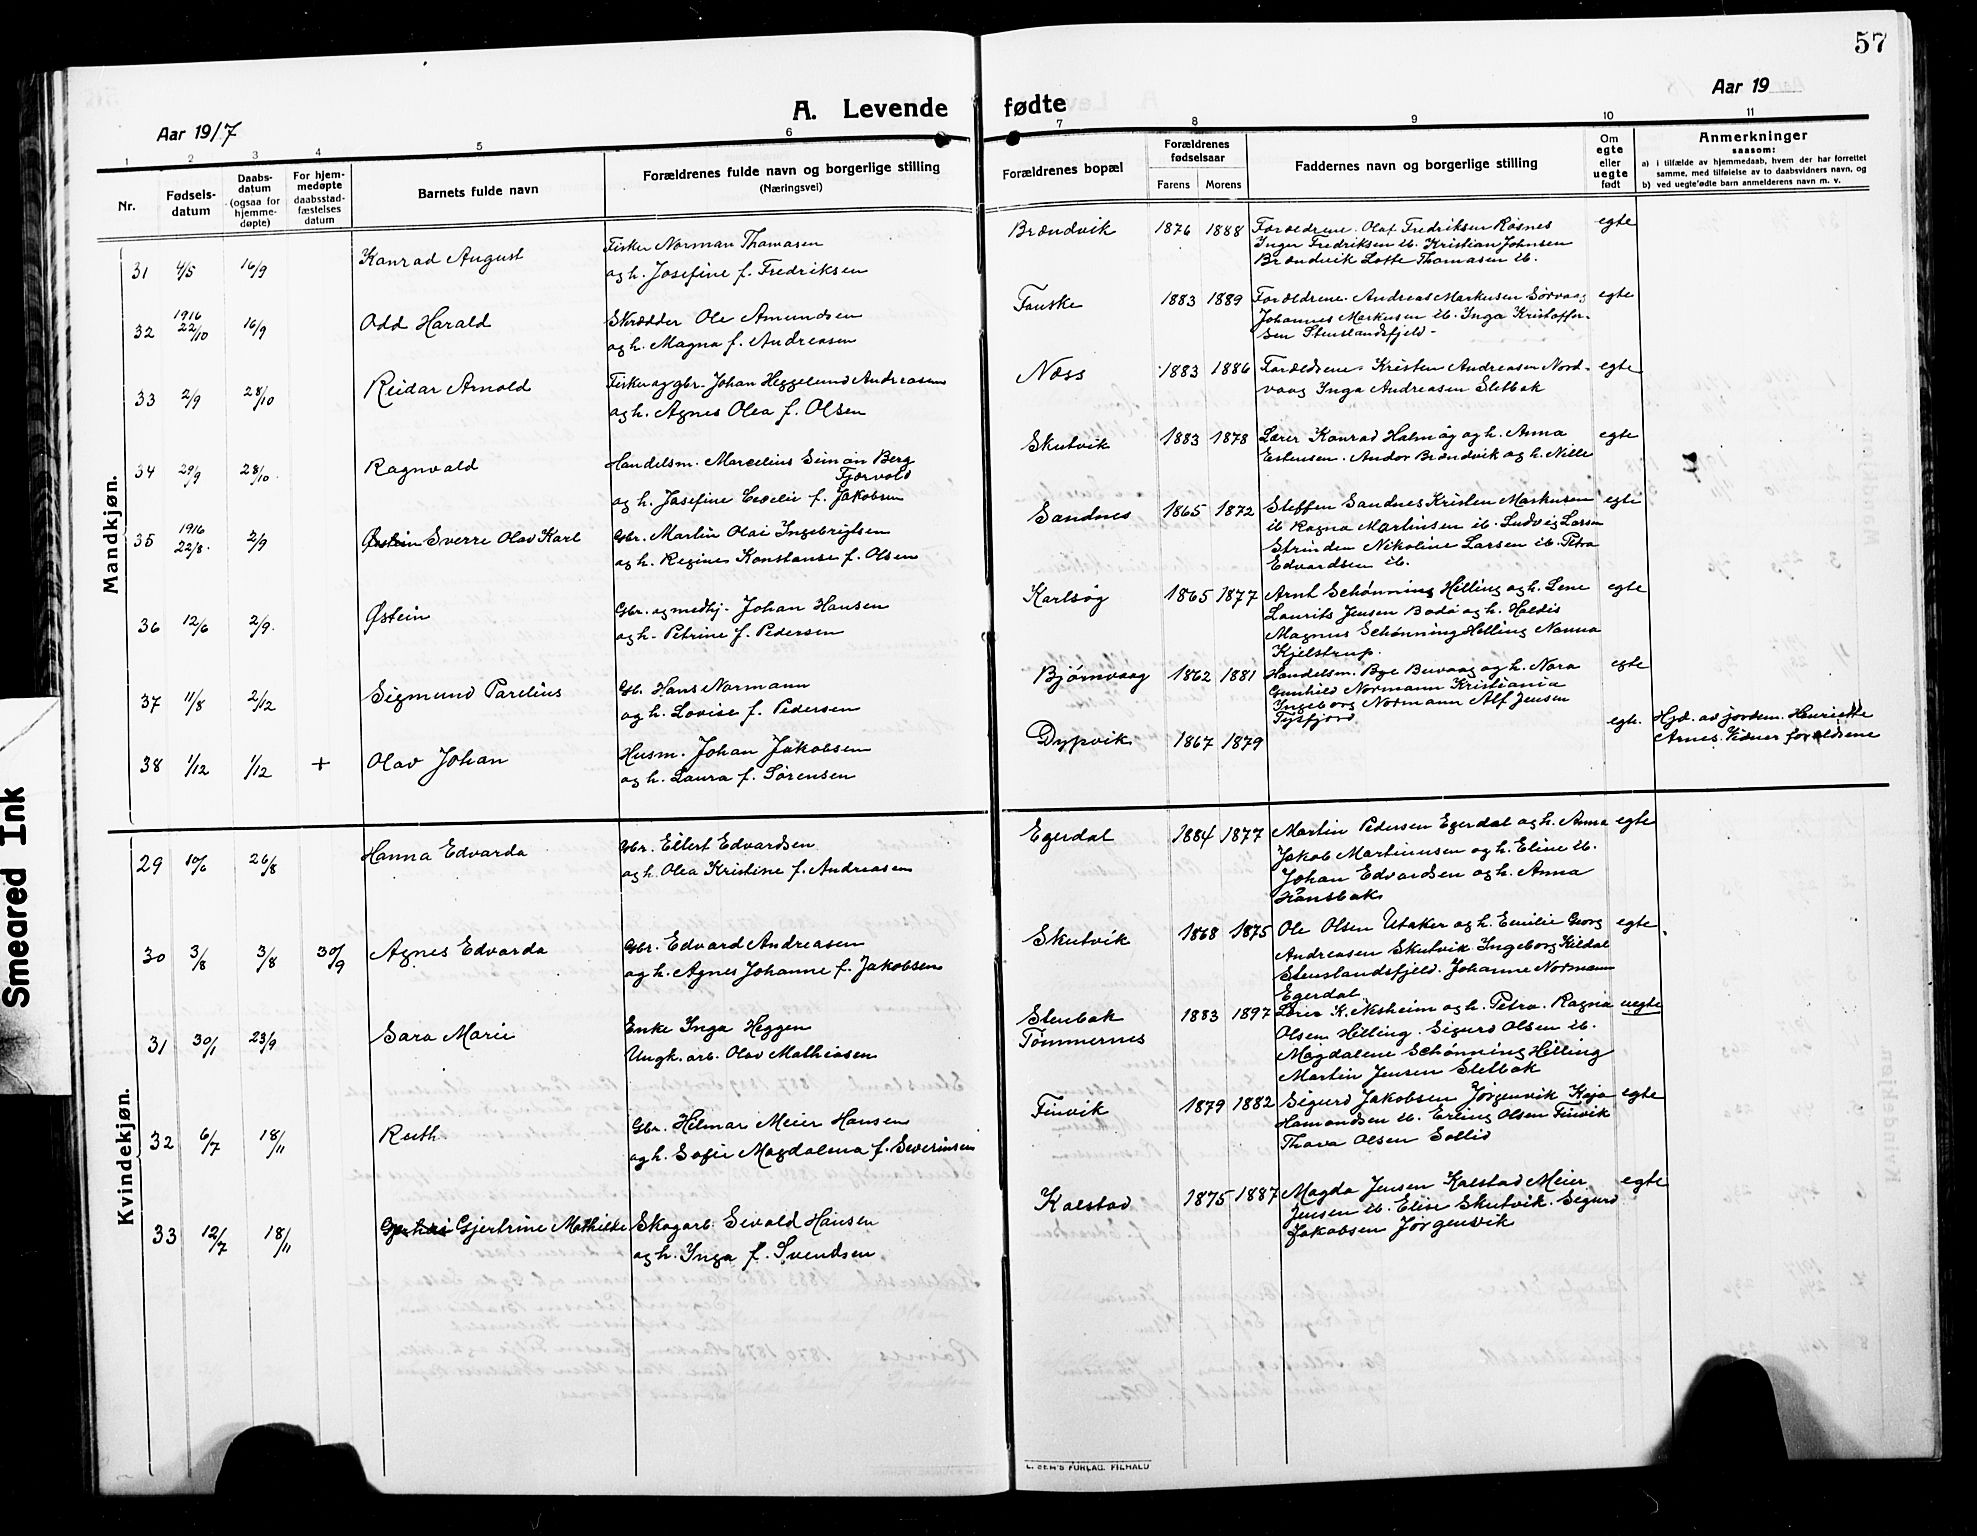 57
A. Levende fødte
Aar 1917
Aar 19
1 2 3 4 5 6 7 8 9 10 11
Nr.
Fødsels-
datum
Daabs-
datum
(ogsaa for
hjemme-
døpte)
For hjem-
medøpte
daabsstad-
fæstelses
datum
Barnets fulde navn
Forældrenes fulde navn og borgerlige stilling
(Næringsvei)
Forældrenes bopæl
Forældrenes
fødselsaar
Farens Morens
Faddernes navn og borgerlige stilling
Om
egte
eller
uegte
født
Anmerkninger
saasom:
a) i tilfælde av hjemmedaab, hvem der har forrettet
samme, med tilføielse av to daabsvidners navn, og
b) ved uegte fødte barn anmelderens navn m. v.
Mandkjøn.
31 4/5 16/9 Konrad August
Fisker Norman Thomasen
og h. Josefine f. Fredriksen
Brændvik 1876 1888
Forældrene. Olaf Fredriksen Røsnes
Inger Fredriksen ib. Kristian Johnsen
Brændvik Lotte Thomasen ib.
egte
32 1916 22/10 16/9 Odd Harald
Skrædder Ole Amundsen
og h. Magna f. Andreasen
Fauske 1883 1889
Forældrene. Andreas Markusen Sørvaag
Johannes Markusen ib. Inga Kristoffer-
sen Stenslandsfjeld
egte
33 2/9 28/10 Reidar Arnold
Fisker og gbr. Johan Heggelund Andreasen
og h. Agnes Olea f. Olsen
Næss 1883 1886
Forældrene Kristen Andreasen Nord-
vaag Inga Andreasen Sletbak
egte
34 29/9 28/10 Ragnvald
Handelsm. Marcelius Simon Berg
Fjervold
og h. Josefine Cecelie f. Jakobsen
Skutvik 1883 1878
Lærer Konrad Halmøy og h. Anna
Estensen. Andor Brændvik og h. Nille
egte
35 1916 22/8 2/9 Sverre Olav Karl
Gbr. Martin Olai Ingebrigtsen
og h. Regine Konstanse f. Olsen
Sandnes 1865 1872
Steffen Sandnes Kristen Markusen
ib Ragna Martinsen ib. Ludvig Larsen
Strinden Nikoline Larsen ib. Petra
Edvardsen ib.
egte
36 12/6 2/9 Østein
Gbr. og medhj. Johan Hansen
og h. Petrine f. Pedersen
Karlsøy 1865 1877
Arnt Schønning Helling og h. Lene
Laurits Jensen Bodø og h. Haldis
Magnus Schønning Helling Nanna
Kjelstrup.
egte
37 11/8 2/12 Sigmund Parelius
Gb. Hans Normann
og h. Lovise f. Pedersen
Bjørnvaag 1862 1881
Handelsm. Bye Buvaag og h. Nora
Gunhild Normann Kristiania
Ingeborg Normann Alf Jensen
Tysfjord
egte
38 1/12 1/12 + Olav Johan
Husm. Johan Jakobsen
og h. Laura f. Sørensen
Dypvik 1867 1879
egte.
Hjd. av jordem. Henriette
Arnes. Vidner forældrene
Kvindekjøn.
29 10/6 26/8 Hanna Edvarda
Gbr. Eilert Edvardsen
og h. Olea Kristine f. Andreasen
Egerdal 1884 1877
Martin Pedersen Egerdal og h. Anna
Jakob Martinusen og h. Eline ib.
Johan Edvardsen og h. Anna
Hansbak
egte
30 3/8 3/8 30/9 Agnes Edvarda
Gbr. Edvard Andreasen
og h. Agnes Johanne f. Jakobsen
Skutvik 1868 1875
Ole Olsen Utaker og h. Emilie Georg
Andreasen Skutvik Ingeborg Kildal
Stenslandsfjeld. Johanne Normann
Egerdal
egte
31 30/1 23/9 Sara Marie
Enke Inga Heggen
Ungk. arb. Olav Mathiasen
Slenbak
Tømmernes
1883 1897
Lærer K. Nesheim og h. Petra. Ragna
Olsen Helling. Sigurd Olsen ib.
Magdalene Schønning Helling
Martin Jensen Sletbak
uegte
32 6/7 18/11 Ruth.
Gbr. Hilmar Meier Hansen
og h. Sofie Magdalena f. Severinsen
Finvik 1879 1882
Sigurd Jakobsen Jørgensvik Kaja
Hamondsen ib. Erling Olsen Finvik
Thora Olsen Sollid
egte
33 12/7 18/11 Gjertrine Mathilde
Skogarb. Sivald Hansen
og h. Inga f. Svendsen
Kalstad 1875 1887
Magda Jensen Kalstad Meier
Jensen ib. Elise Skutvik. Sigurd
Jakobsen Jørgensvik
egte
Smeared Ink